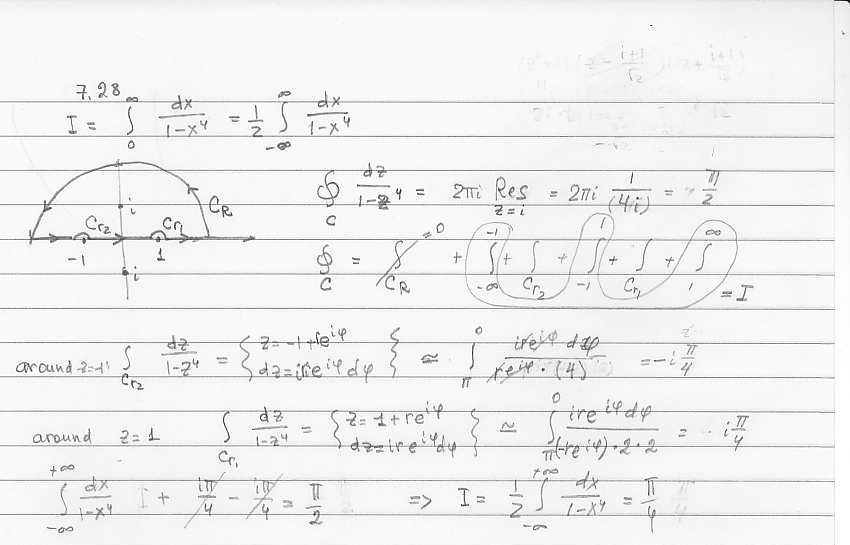 7.28
I = ∫₀^∞ dx/(1-x⁴) = 1/2 ∫_{-∞}^∞ dx/(1-x⁴)
C_R
i
C_{r₂} C_{r₁}
-1 1
i
∮_C dz/(1-z⁴) = 2πi Res_{z=i} = 2πi 1/(4i) = π/2
∮_C = ∫_{C_R} =0 + ∫_{-∞}^{-1} + ∫_{C_{r₂}} + ∫_{-1}^{1} + ∫_{C_{r₁}} + ∫_1^∞
= I
around z=-1 ∫_{C_{r₂}} dz/(1-z⁴) = { z=-1+re^{iφ} dz=ire^{iφ}dφ } ≃ ∫_π^0 ire^{iφ} dφ/(re^{iφ}·(4)) = -i π/4
around z=1 ∫_{C_{r₁}} dz/(1-z⁴) = { z=1+re^{iφ} dz=ire^{iφ}dφ } ≃ ∫_π^0 ire^{iφ}dφ/((-re^{iφ})·2·2) = i π/4
∫_{-∞}^{+∞} dx/(1-x⁴) + iπ/4 - iπ/4 = π/2 => I = 1/2 ∫_{-∞}^{+∞} dx/(1-x⁴) = π/4